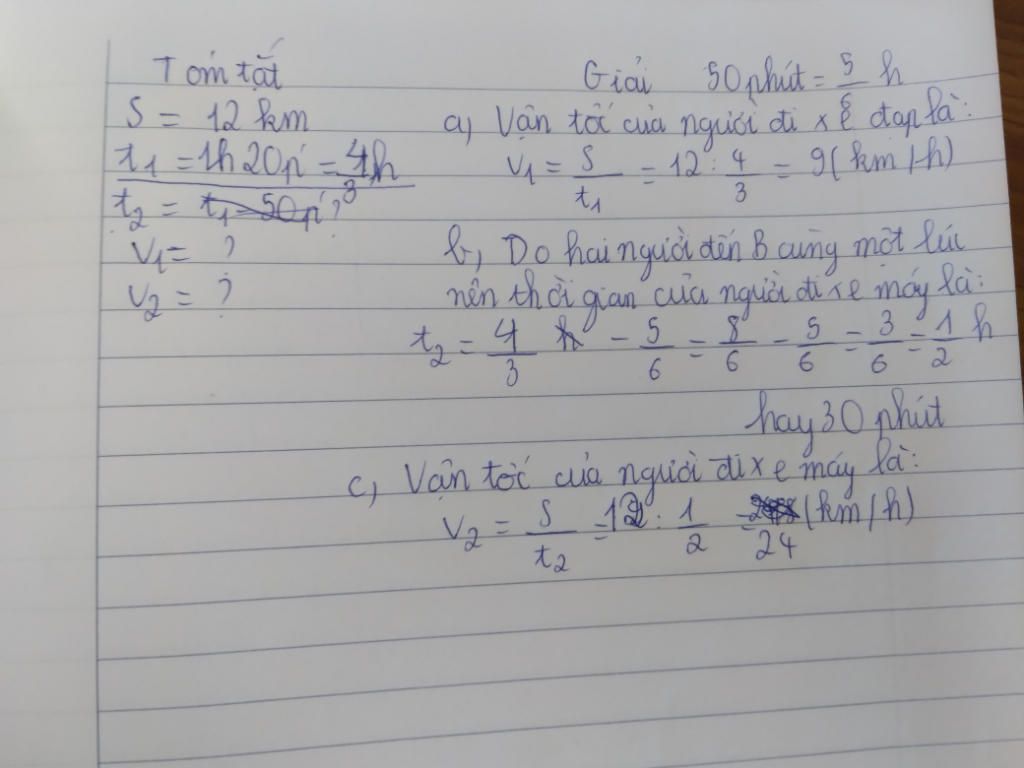 Tóm tắt
S = 12 km
t1 = 1h 20p' = 4/3 h
t2 = t1 - 50p' ?
V1 = ?
V2 = ?
Giải 50 phút = 5/6 h
a, Vận tốc của người đi xe đạp là:
V1 = S/t1 = 12 : 4/3 = 9 (km/h)
b, Do hai người đến B cùng một lúc
nên thời gian của người đi xe máy là:
t2 = 4/3 h - 5/6 = 8/6 - 5/6 = 3/6 = 1/2 h
hay 30 phút
c, Vận tốc của người đi xe máy là:
V2 = S/t2 = 12 : 1/2 = 24 (km/h)